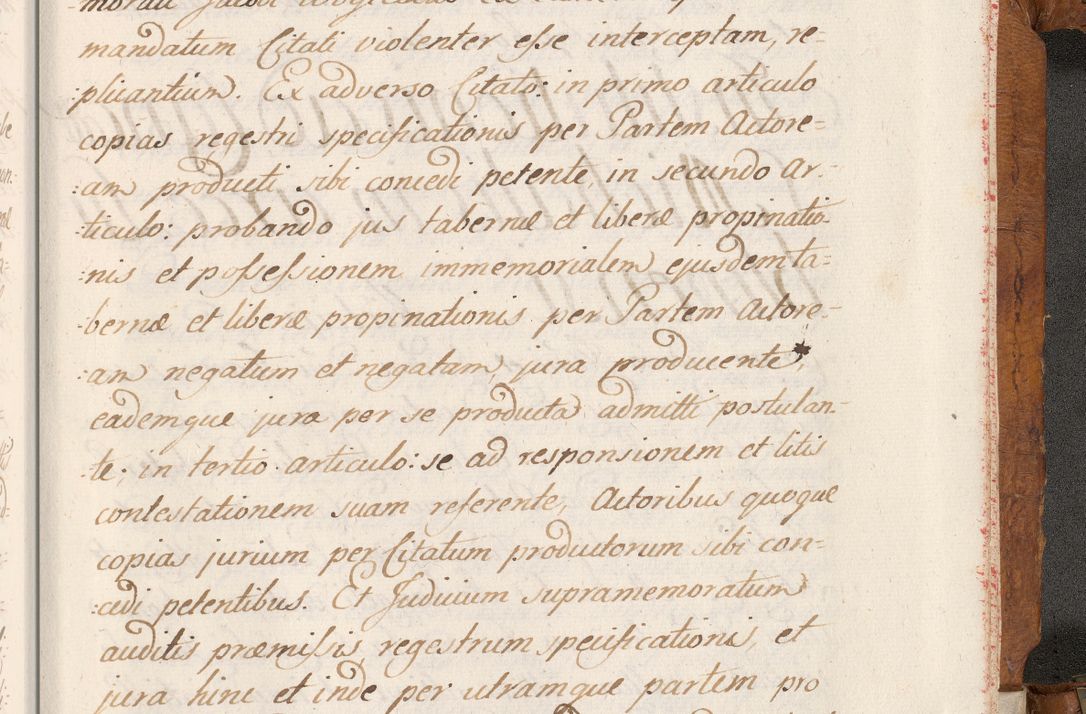 mandatum Citati violenter esse interceptam, re=
:plicantium. Ex adverso Citato: in primo articulo
copias regestri specificationis per Partem Actore=
:am producti sibi concedi petente, in secundo Ar-
:ticulo: probando jus tabernæ et liberæ propinatio
:nis et possessionem immemorialem ejusdem ta=
:bernæ et liberæ propinationis per Partem Actore-
:am negatum et negatam, jura producente,
eademque jura per se producta admitti postulan-
:te; in tertio articulo: se ad responsionem et litis
contestationem suam referente, Actoribus quoque
copias jurium per Citatum productorum sibi con=
:cedi petentibus. Et Judicium supramemoratum
auditis præmissis regestrum specificationis, et
jura hinc et inde per utramque partem pro